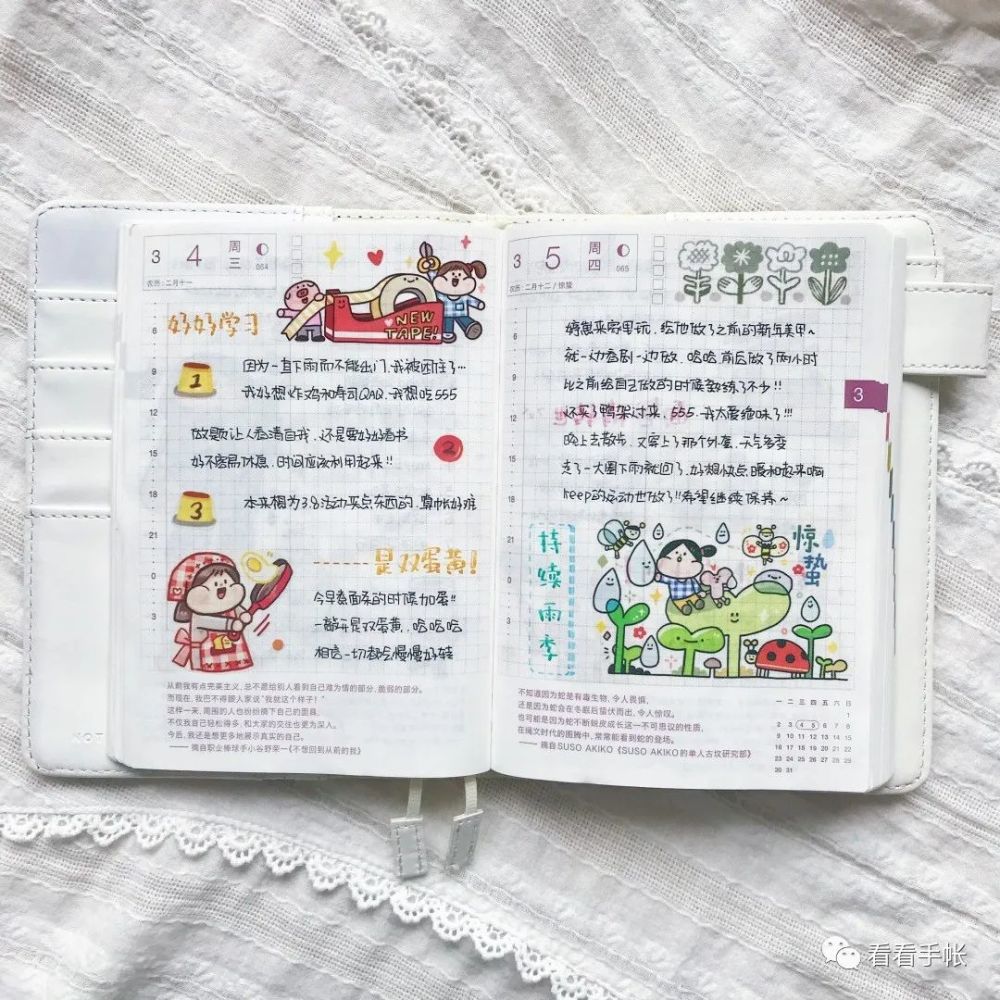 3 4 周三 064
农历:二月十一
NEW TAPE!
好好学习
6
9
12
15
18
21
0
3
1 因为一直下雨而不能出门.我被困住了…
我好想炸鸡和寿司QAQ.我想吃555
做题让人看清自我.还是要好好看书 2
好不容易休息.时间应该利用起来!!
3 本来想为3.8活动买点东西的.算
------是双蛋黄!
今早煮面条的时候加蛋!!
一敲开是双蛋黄.哈哈哈
相信一切都会慢慢好转
从前我有点完美主义,总不愿给别人看到自己难为情的部分、脆弱的部分。
而现在,我巴不得跟人家说“我就这个样子!”
这样一来,周围的人也纷纷摘下自己的面具,
不仅我自己轻松得多,和大家的交往也更为深入。
今后,我还是想更多地展示真实的自己。
—— 摘自职业棒球手小谷野荣一《不想回到从前的我》
NOT
3 5 周四 065
农历:二月十二/惊蛰
6
9
12
15
18
21
0
3
来家里玩.给他做了之前的新年美甲~
就一边看剧一边做.哈哈.前后做了两小时
比之前给自己做的时候熟练了不少!!
还买了鸭架过来.555.我太爱绝味了!!!
晚上去散步.又穿上了那个外套.天气多变
走了一大圈下雨就回了.好想快点暖和起来啊
keep的运动也做了!!希望继续保持~
3
持续雨季
惊蛰
不知道因为蛇是有毒生物,令人畏惧,
还是因为蛇会在冬眠后蛰伏而出,令人惊叹。
也可能是因为蛇不断蜕皮成长这一不可思议的性质,
在绳文时代的图腾中,常常能看到蛇的登场。
—— 摘自SUSO AKIKO《SUSO AKIKO的单人古坟研究部》
一 二 三 四 五 六 日
1
2 3 4 5 6 7 8
9 10 11 12 13 14 15
16 17 18 19 20 21 22
23 24 25 26 27 28 29
30 31
看看手帐